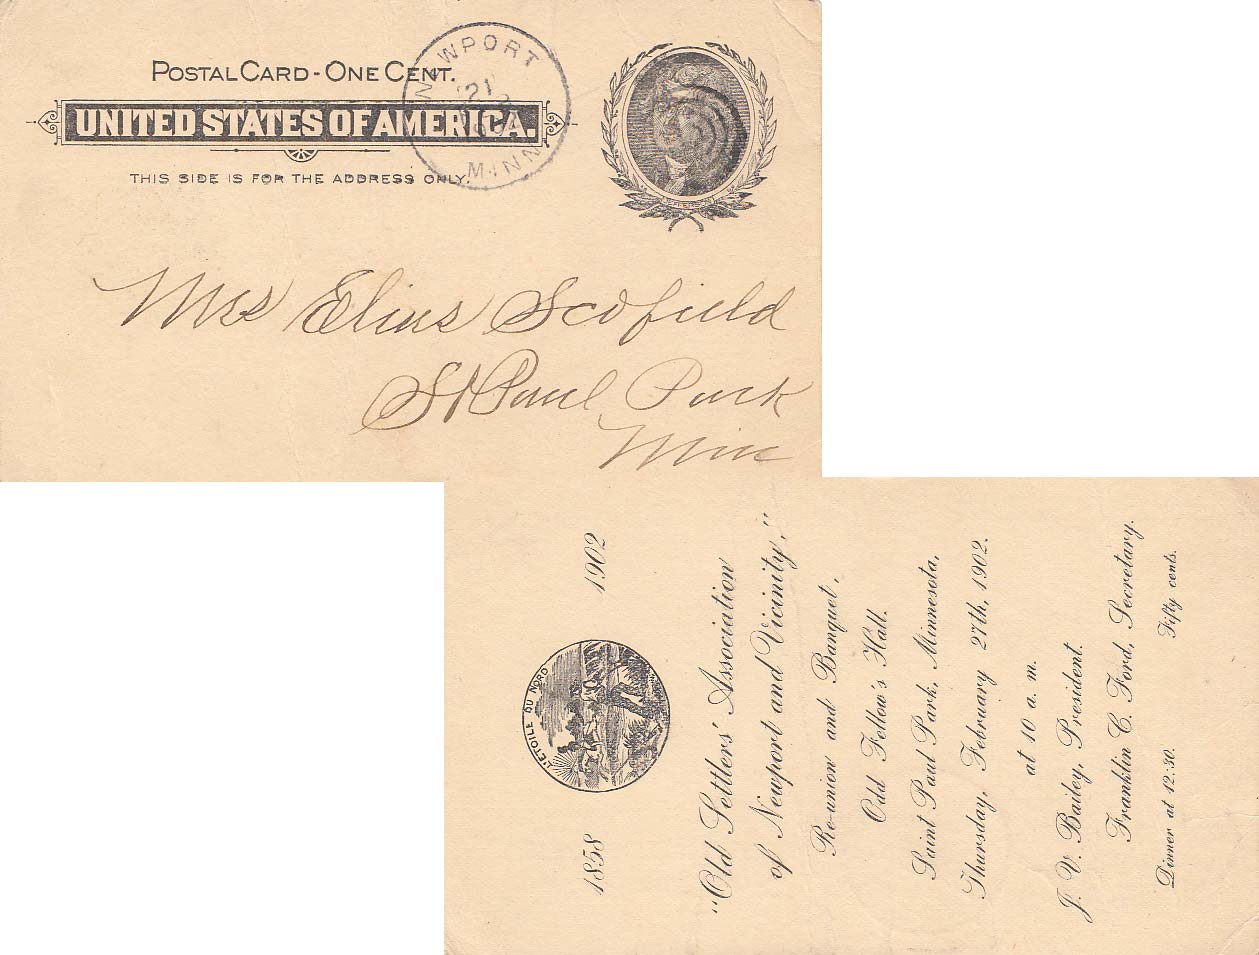 POSTAL CARD - ONE CENT.
UNITED STATES OF AMERICA.
THIS SIDE IS FOR THE ADDRESS ONLY.
NEWPORT
21
MINN
Mrs Elias Scofield
St Paul Park
Min
1858 1902
L'ETOILE DU NORD
"Old Settlers' Association
of Newport and Vicinity,"
Re-union and Banquet,
Odd Fellow's Hall.
Saint Paul Park, Minnesota,
Thursday, February 27th, 1902.
at 10 a. m.
J. V. Bailey, President.
Franklin C. Ford, Secretary.
Dinner at 12:30. Fifty cents.